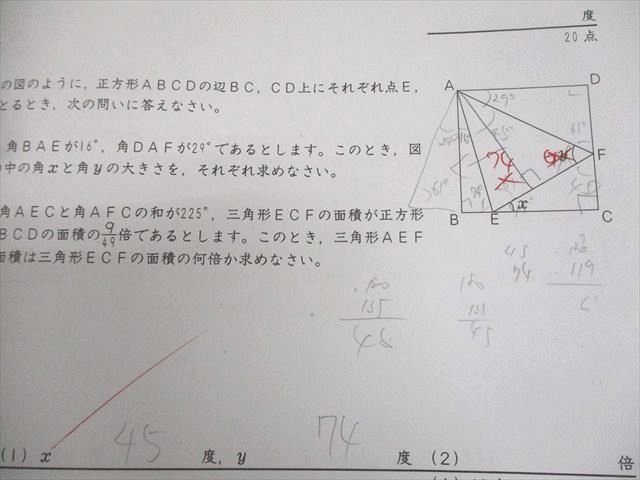 度
20点
の図のように，正方形ＡＢＣＤの辺ＢＣ，ＣＤ上にそれぞれ点Ｅ，
とるとき，次の問いに答えなさい。
角ＢＡＥが16°，角ＤＡＦが29°であるとします。このとき，図
の中の角xと角yの大きさを，それぞれ求めなさい。
角ＡＥＣと角ＡＦＣの和が225°，三角形ＥＣＦの面積が正方形
ＢＣＤの面積の9/49倍であるとします。このとき，三角形ＡＥＦ
面積は三角形ＥＣＦの面積の何倍か求めなさい。
A
D
29°
45°
61°
74
F
61°
x
B
E
C
45
74
119
180
135
45
180
(1) x 45 度，y 74 度 (2) 倍